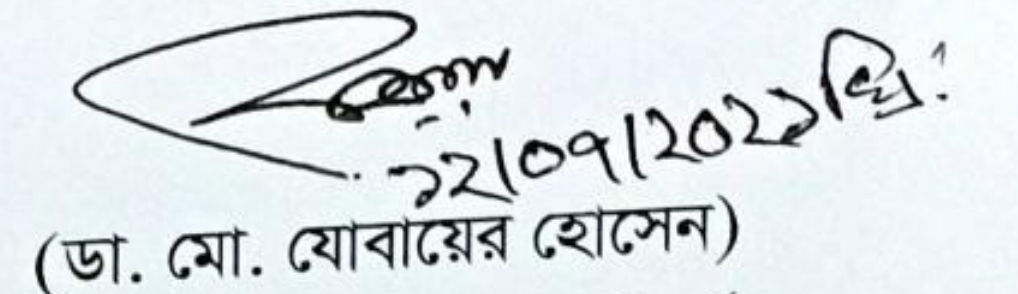 ১২/০৭/২০২১ খ্রি:
(ডা. মো. যোবায়ের হোসেন)